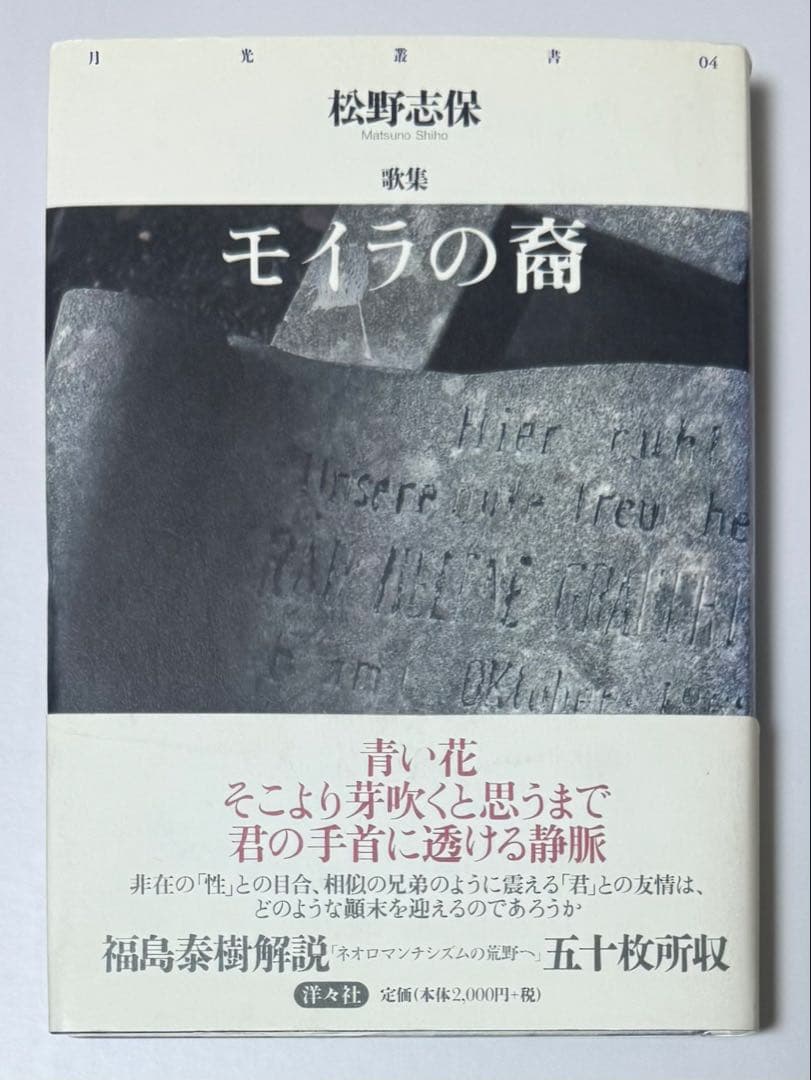 月光叢書 04
松野志保
Matsuno Shiho
歌集
モイラの裔
Hier ruht
Unsere gute treu he
HELENE
am Oktober
青い花
そこより芽吹くと思うまで
君の手首に透ける静脈
非在の「性」との目合、相似の兄弟のように震える「君」との友情は、
どのような顚末を迎えるのであろうか
福島泰樹解説「ネオロマンチシズムの荒野へ」五十枚所収
洋々社 定価(本体2,000円+税)